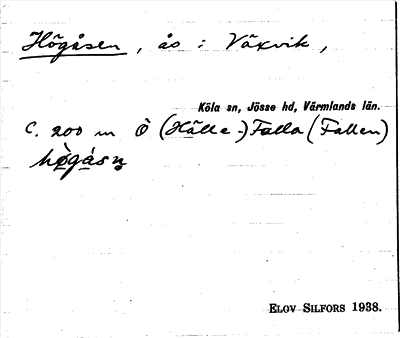 Högåsen, ås i Växvik,
Köla sn, Jösse hd, Värmlands län.
C. 200 m Ö (Hälle-)Falla (Fallen)
hø̀gásn̥
ELOV SILFORS 1938.